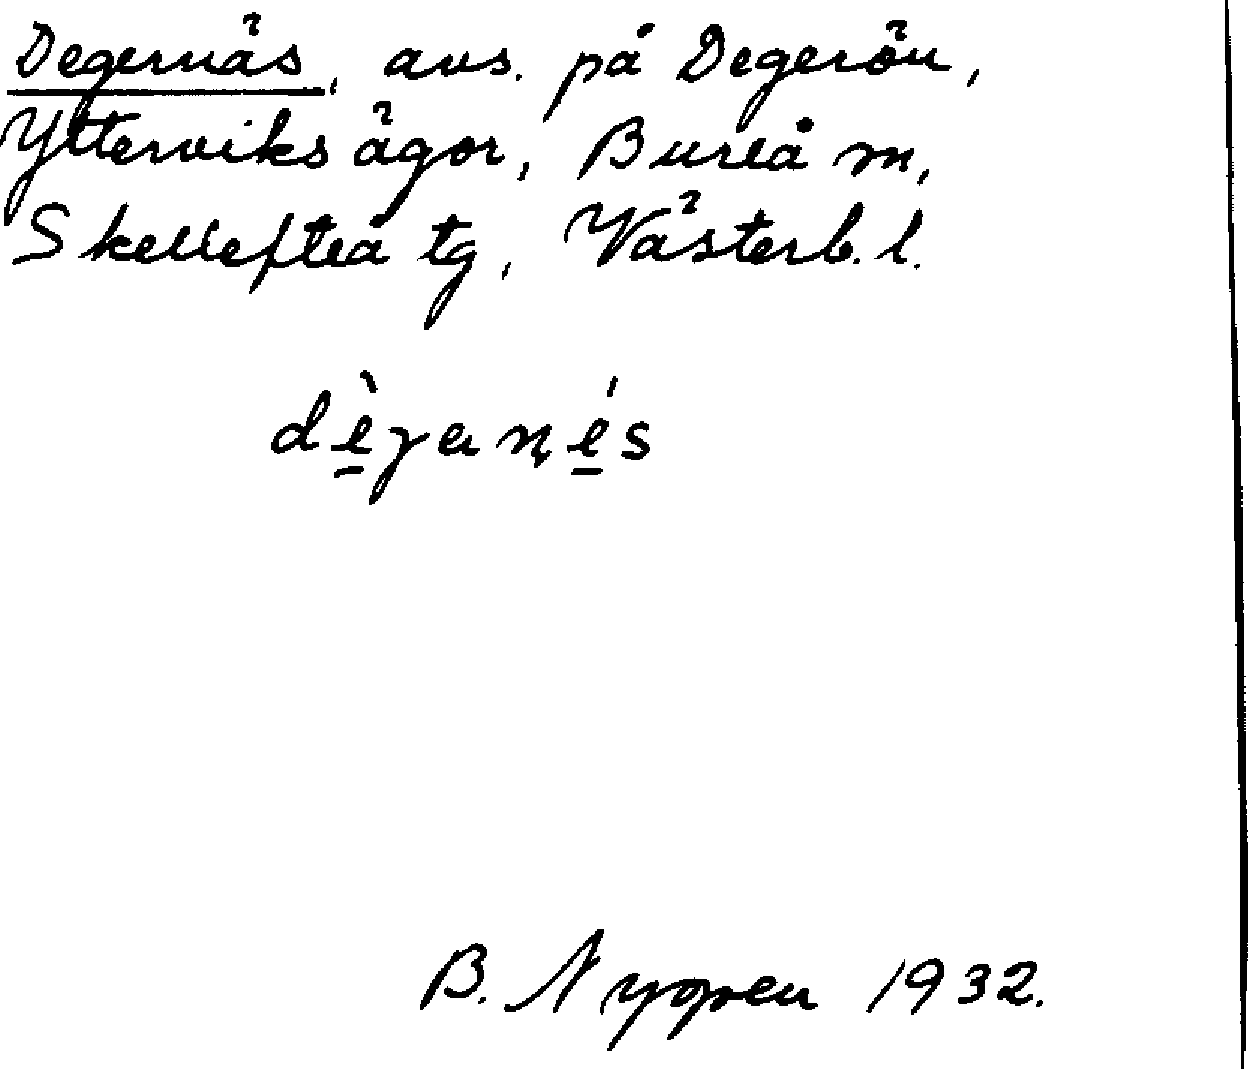 Degernäs, avs. på Degerön,
Ytterviks ägor, Bureå m,
Skellefteå tg, Västerb. l.
dègaņés
B. Nygren 1932.